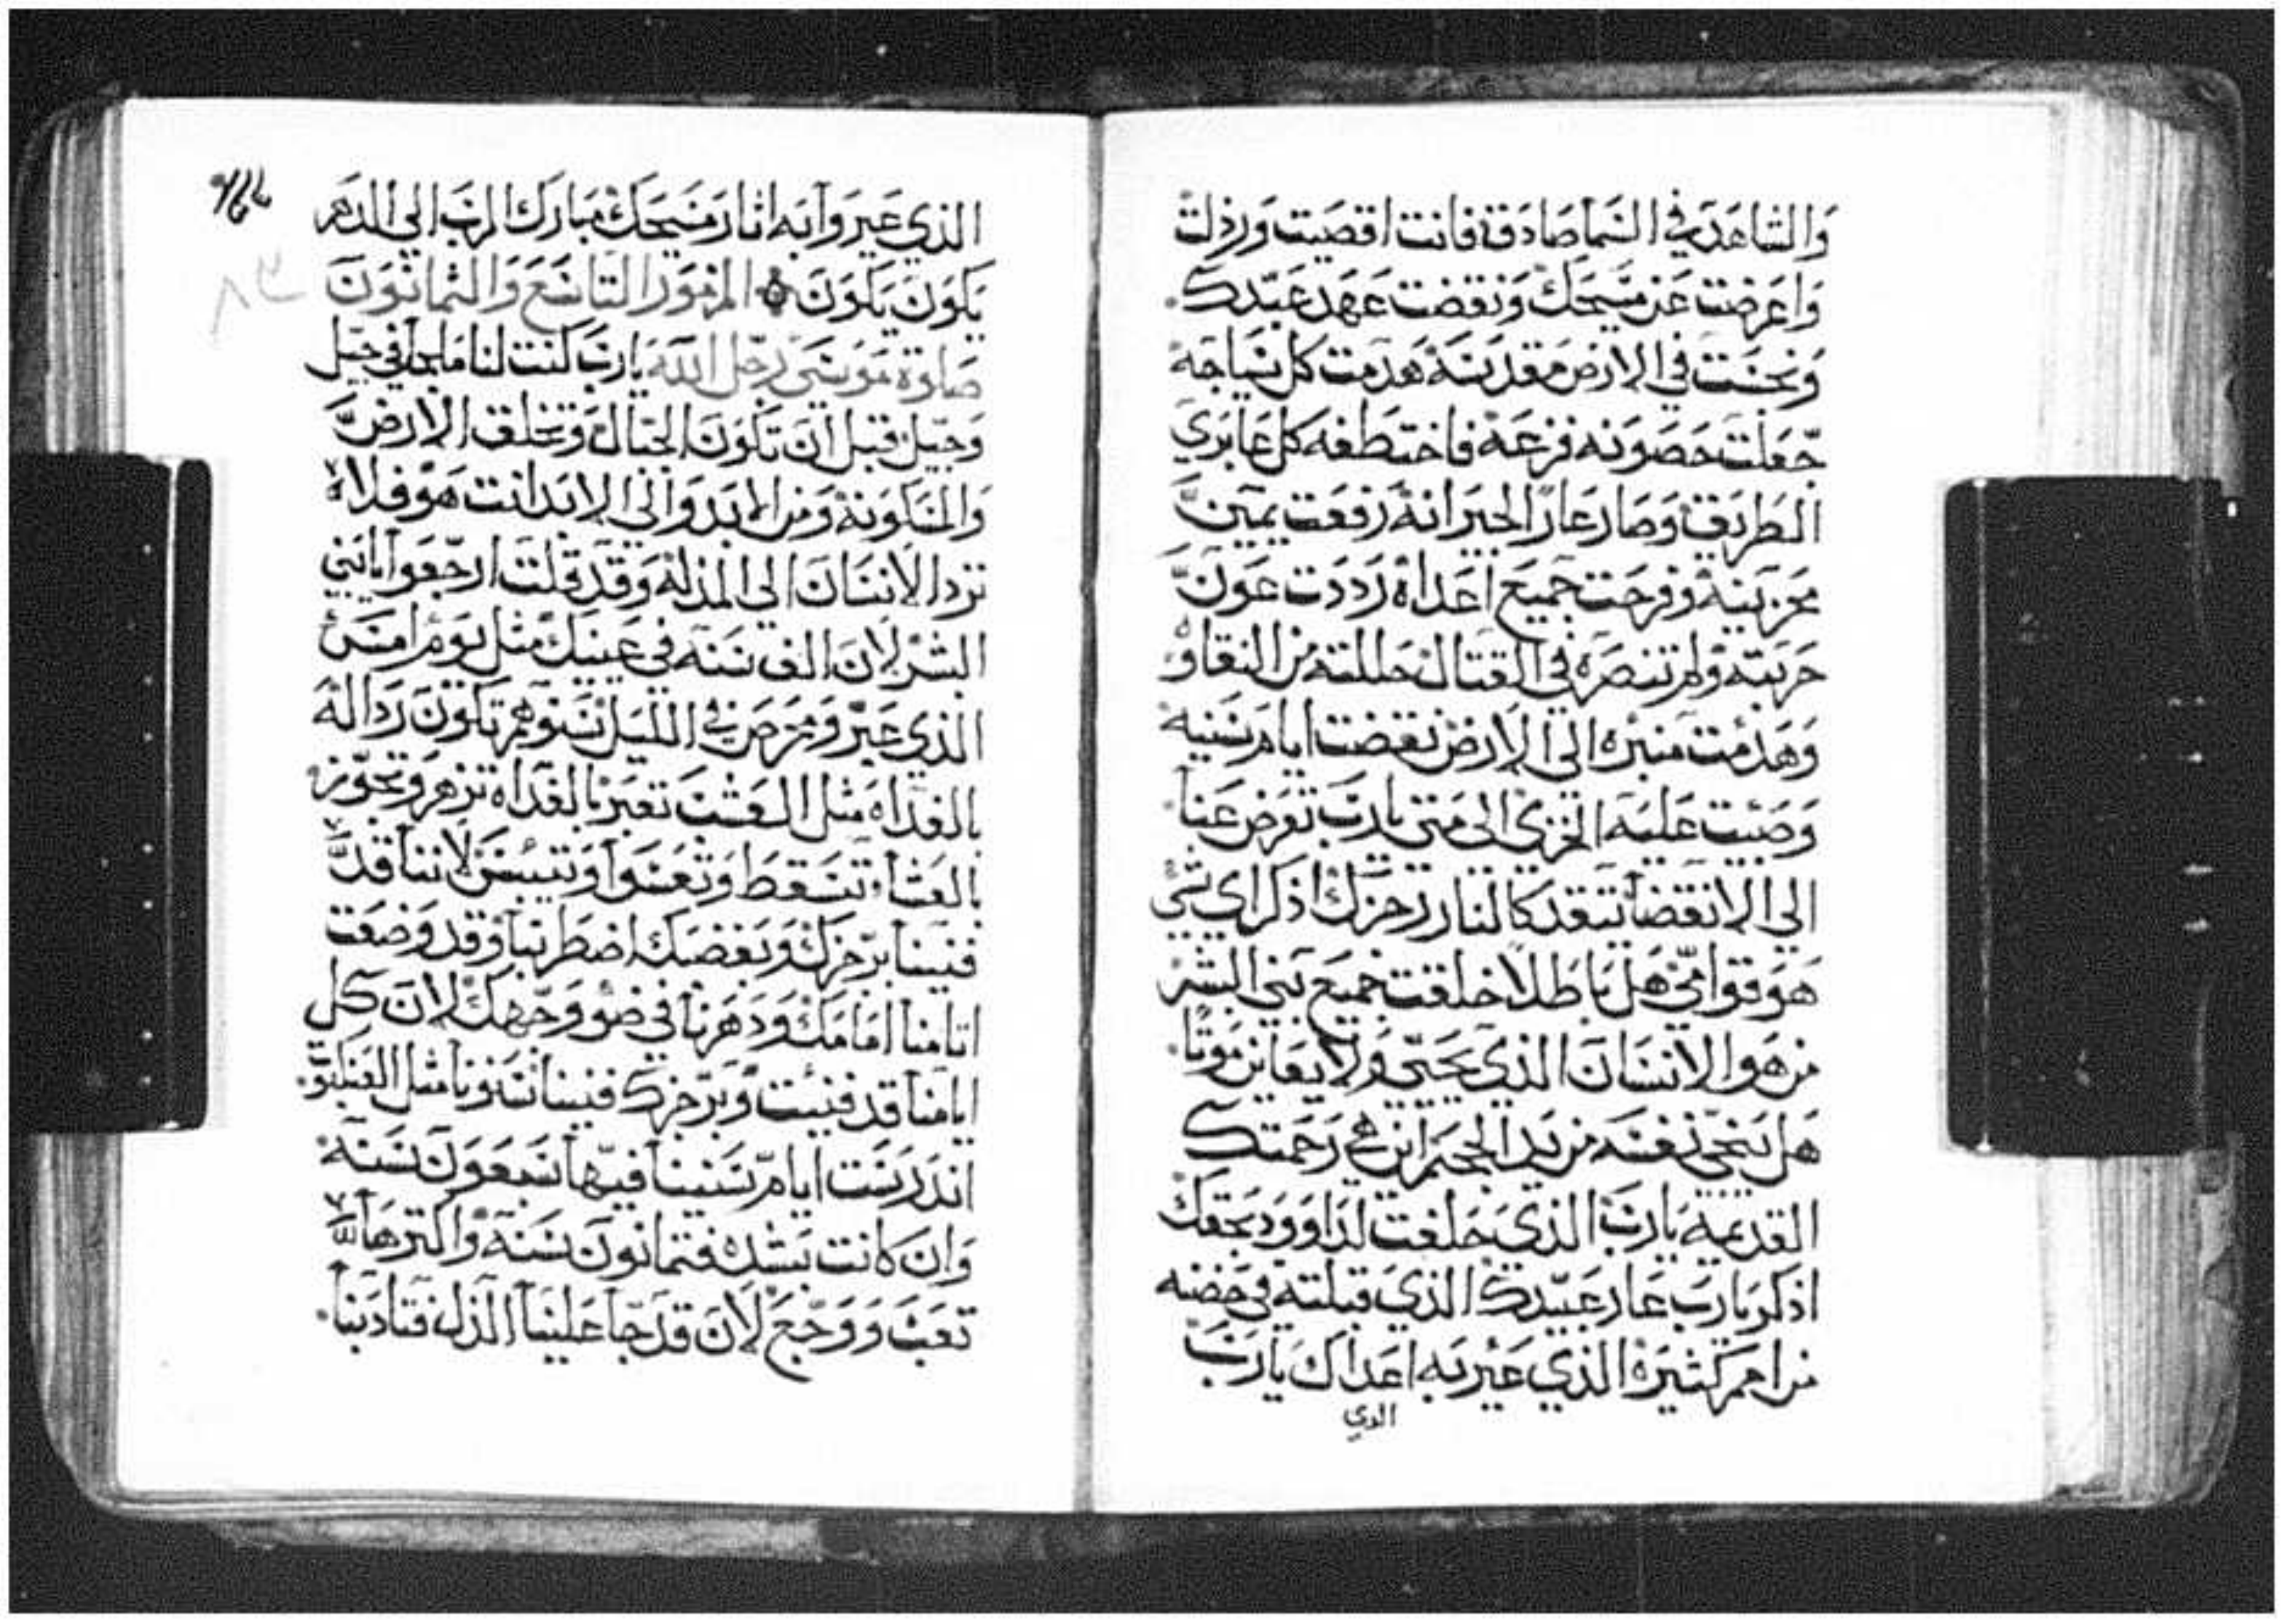 والشاهد في السما صادقة فانت اقصيت ورذلت
واعرضت عن مسيحك ونقضت عهد عبدك
ونجست في الارض مقدسة هدمت كل سياجه
جعلت حصونه فزعة فاختطفه كل عابري
الطريق وصار عارا لجيرانه رفعت يمين
محزنينه وفرحت جميع اعداه رددت عون
حربته ولم تنصره في القتال حللته من النقاوه
وهدمت منبره الي الارض نقضت ايام سنيه
وصبت عليه الخزي الي متي يا رب تعرض عنا
الي الانقضا تتقد كالنار رجزك اذكر اي شي
هو قوامي هل باطلا خلقت جميع بني البشر
من هو الانسان الذي يحيي ولا يعاين موتا
هل ينجي نفسه من يد الجحيم اين هي رحمتك
القديمة يا رب الذي حلفت لداوود بحقك
اذكر يا رب عار عبيدك الذي قبلته في حضنه
من امم كثيرة الذي عير به اعداك يا رب
الدي
الذي عيروا به اثار مسيحك مبارك الرب الي الدهر
يكون يكون المزمور التاسع والثمانون
صلوة موسي رجل الله يا رب كنت لنا ملجا في جيل
وجيل قبل ان تكون الجبال وتخلق الارض
والمسكونة ومن الابد والي الابد انت هو فلا
ترد الانسان الي المذلة وقد قلت ارجعوا يا بني
البشر لان الف سنه في عينيك مثل يوم امس
الذي عبر ومحرص في الليل سنوهم تكون رذاله
بالغداه مثل العشب تعبر بالغداه تزهر وتجوز
بالعشا تسقط وتعسوا وتيبس لاننا قد
فنينا برجزك وبغضبك اضطربنا وقد وضعت
اثامنا امامك ودهرنا في ضو وجهك لان كل
ايامنا قد فنيت وبرجزك فنينا سنونا مثل العنكبوت
اندرست ايام سنينا فيها سبعون سنه
وان كانت بشده فثمانون سنه واكثرها
تعب ووجع لان قد جا علينا الذل فتادبنا